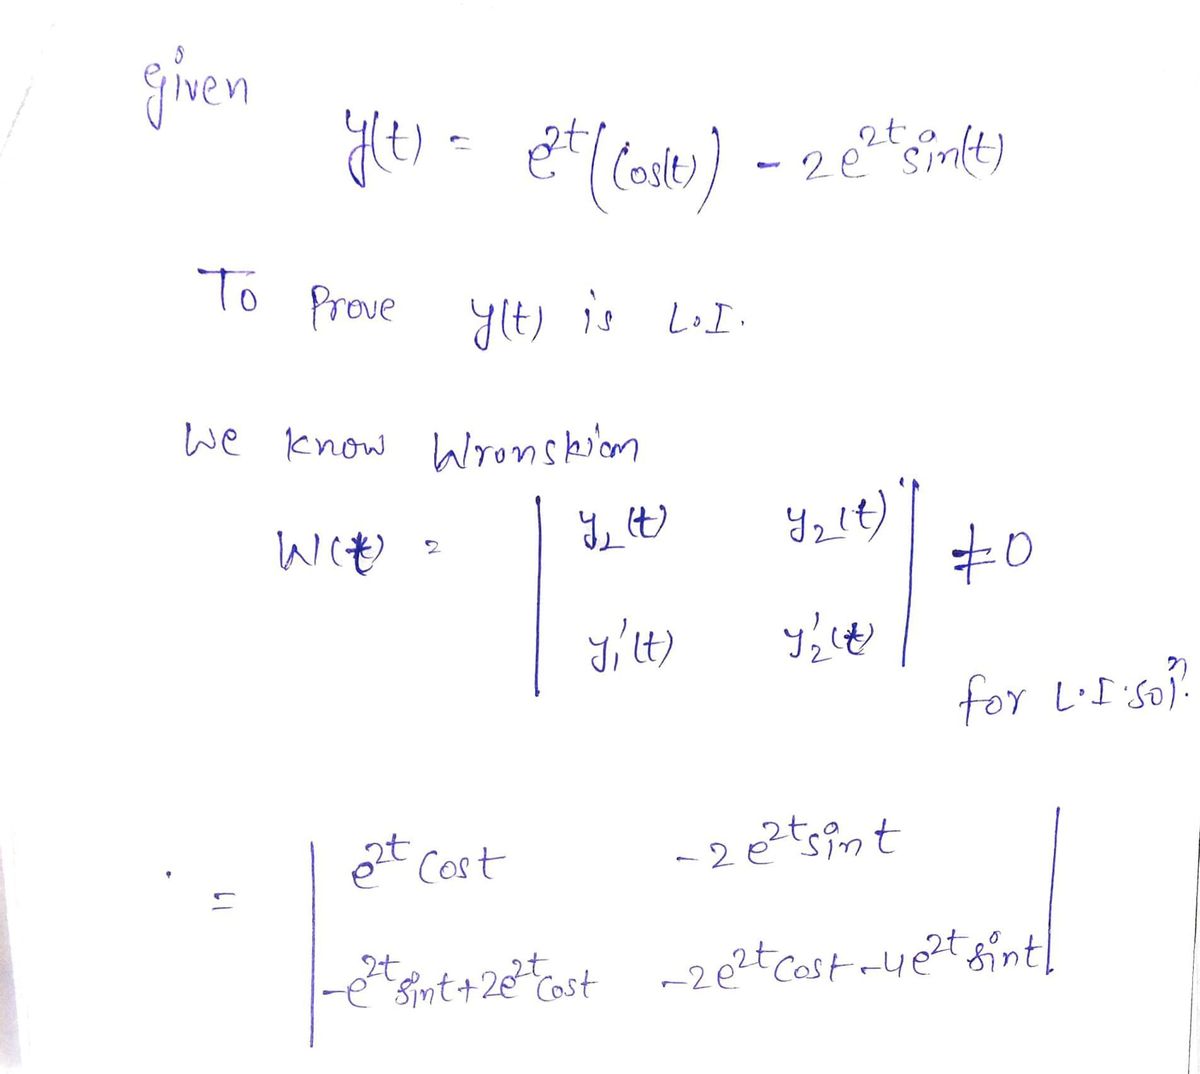 given
y(t) = e^2t (Cos(t)) - 2e^2t sin(t)
To Prove y(t) is L.I.
We know Wronskian
W(t) = | y1(t) y2(t) | ≠ 0
| y1'(t) y2'(t) |
for L.I. sol^n.
= | e^2t Cost -2e^2t sint |
| -e^2t sint + 2e^2t Cost -2e^2t Cost - 4e^2t sint |